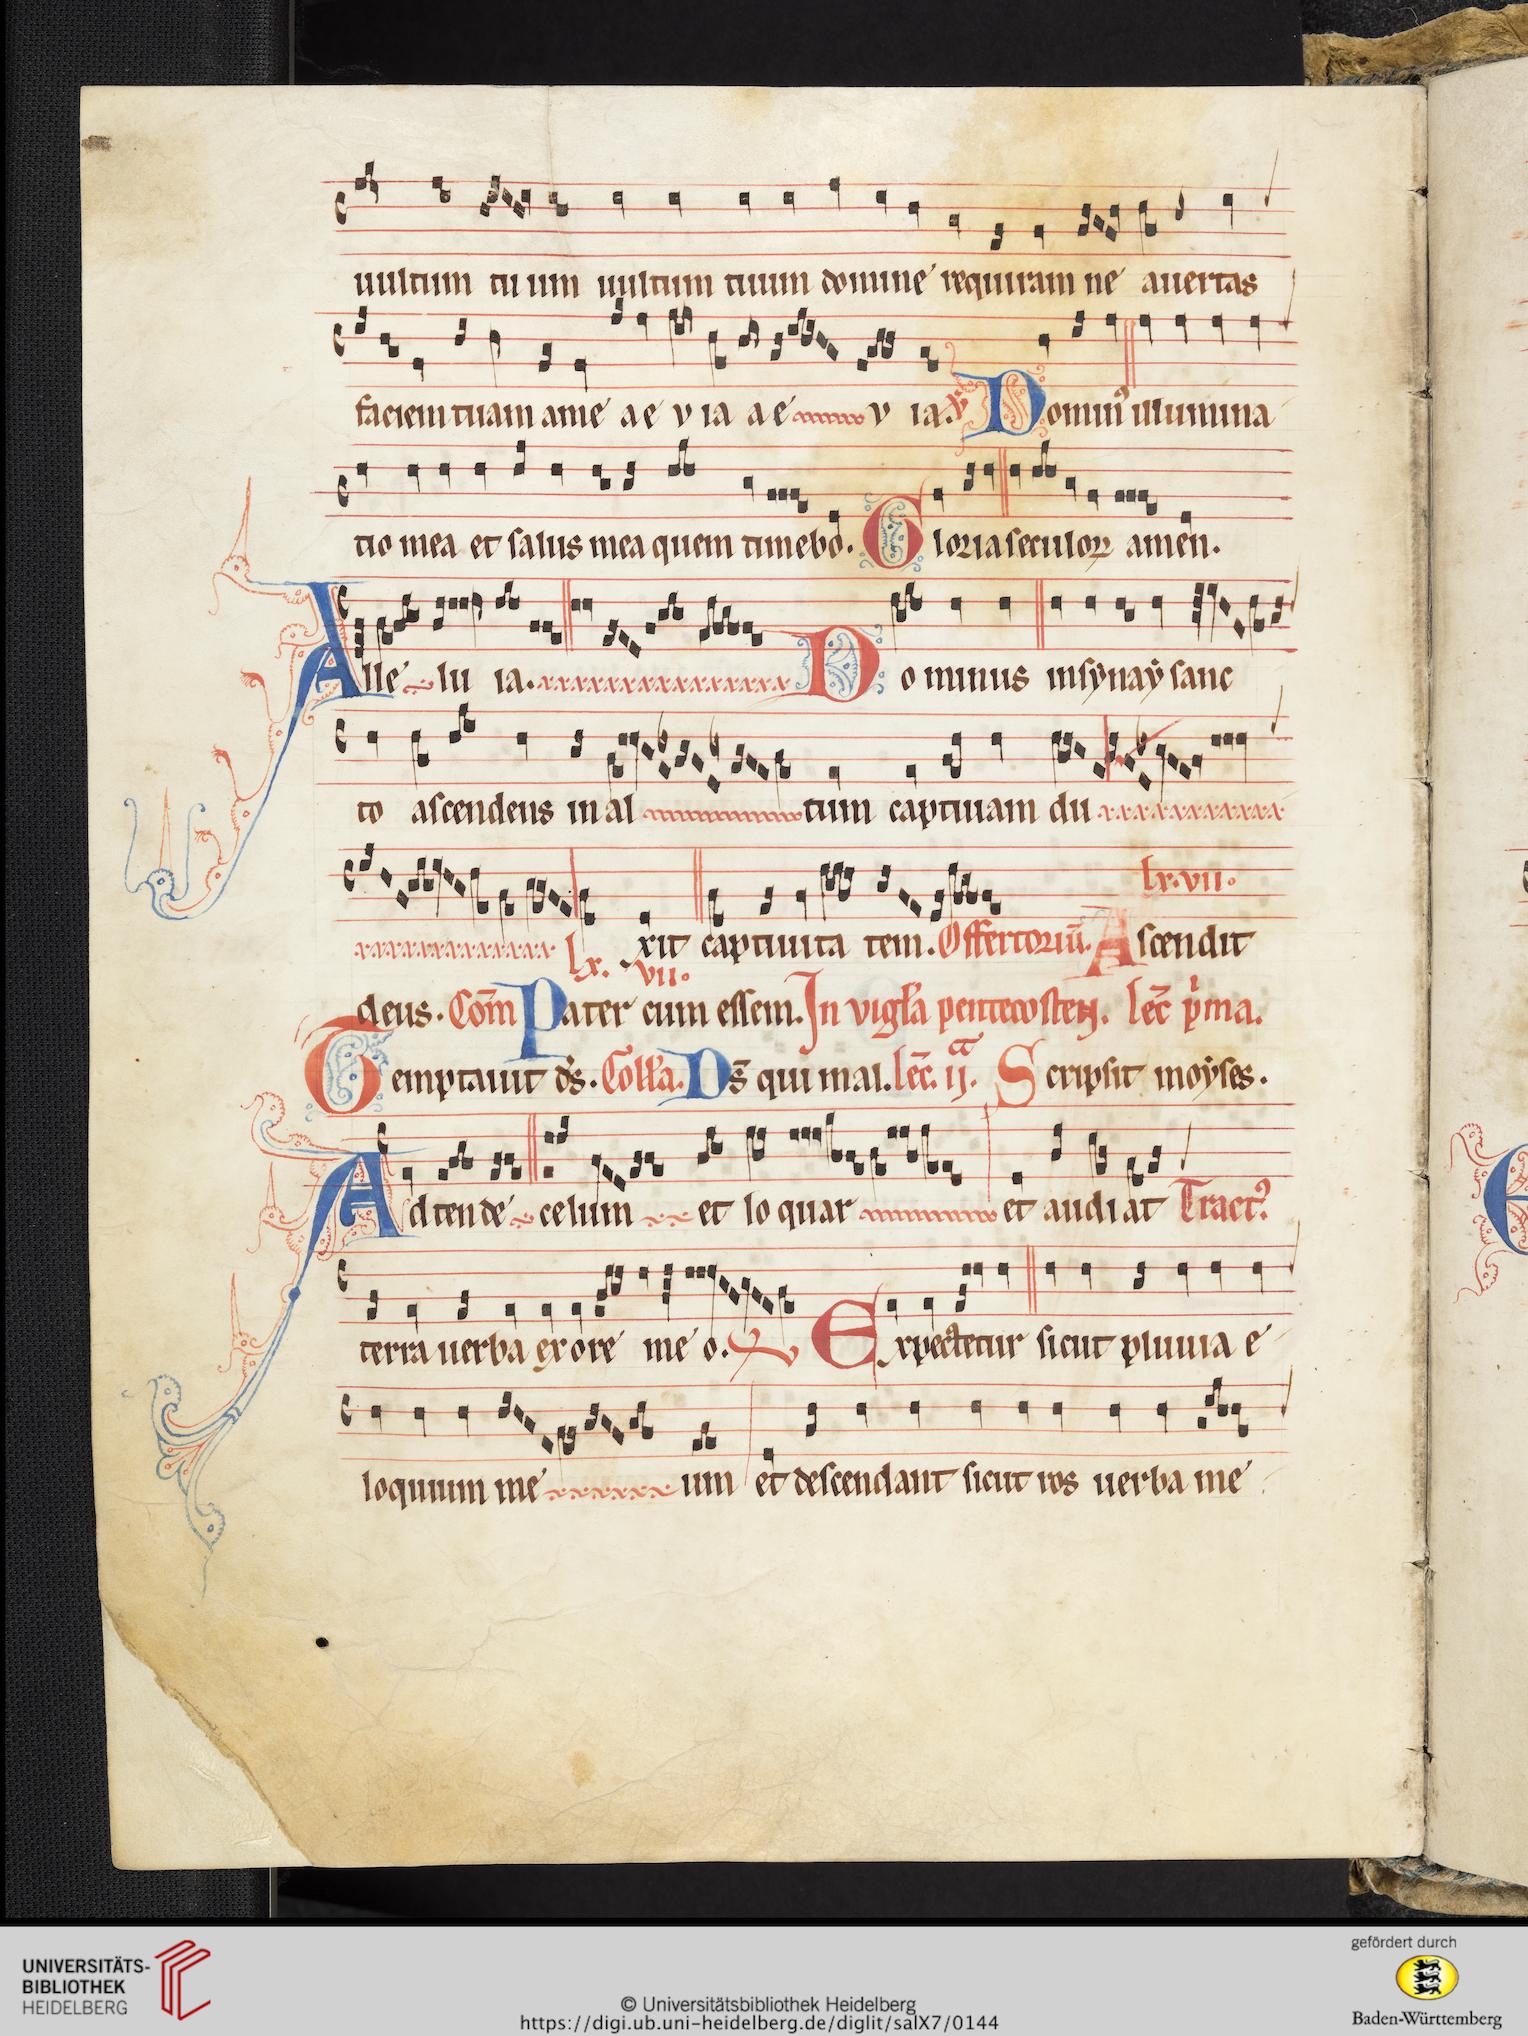 uultum tuum uultum tuum domine requiram ne auertas
faciem tuam ame a e v ia a e v ia. V Domin⁹ illumina
tio mea et salus mea quem timebo. Gloria seculoꝝ amen.
Alle lu ia. Do minus insẏnaẏ sanc
to ascendens in al tum captiuam du
lx.vii.
xit captiuita tem. Offertoriū. Ascendit
lx. vii.
deus. Com̄ Pater cum essem. In vigl'a pentecosten. lec̄ p'ma.
Temptauit ds̄. Coll'a. Ds̄ qui mal. lec̄. ij.ᵃ Scripsit moẏses.
Adtende celum et lo quar et audi at Tract⁹.
terra uerba ex ore me o. Expectetur sicut pluuia e
loquium me um et descendant sicut ros uerba me
UNIVERSITÄTS-
BIBLIOTHEK
HEIDELBERG
© Universitätsbibliothek Heidelberg
https://digi.ub.uni-heidelberg.de/diglit/salX7/0144
gefördert durch
Baden-Württemberg